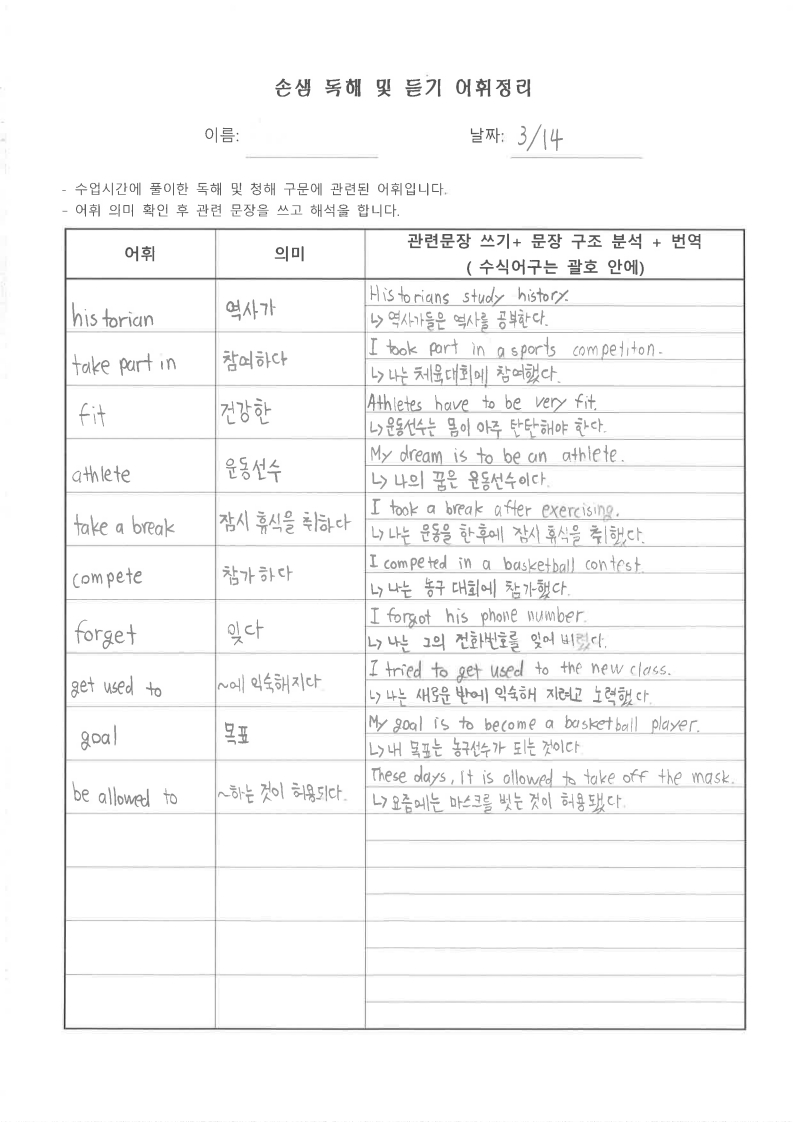 손샘 독해 및 듣기 어휘정리
이름: 날짜: 3/14
- 수업시간에 풀이한 독해 및 청해 구문에 관련된 어휘입니다.
- 어휘 의미 확인 후 관련 문장을 쓰고 해석을 합니다.
어휘 의미 관련문장 쓰기+ 문장 구조 분석 + 번역
( 수식어구는 괄호 안에)
historian 역사가 Historians study history.
↳ 역사가들은 역사를 공부한다.
take part in 참여하다 I took part in a sports competiton.
↳ 나는 체육대회에 참여했다.
fit 건강한 Athletes have to be very fit.
↳ 운동선수는 몸이 아주 탄탄해야 한다.
athlete 운동선수 My dream is to be an athlete.
↳ 나의 꿈은 운동선수이다.
take a break 잠시 휴식을 취하다 I took a break after exercising.
↳ 나는 운동을 한후에 잠시 휴식을 취했다.
compete 참가하다 I competed in a basketball contest.
↳ 나는 농구 대회에 참가했다.
forget 잊다 I forgot his phone number.
↳ 나는 그의 전화번호를 잊어 버렸다.
get used to ~에 익숙해지다 I tried to get used to the new class.
↳ 나는 새로운 반에 익숙해 지려고 노력했다.
goal 목표 My goal is to become a basketball player.
↳ 내 목표는 농구선수가 되는 것이다
be allowed to ~하는 것이 허용되다. These days, It is allowed to take off the mask.
↳ 요즘에는 마스크를 벗는 것이 허용됐다.